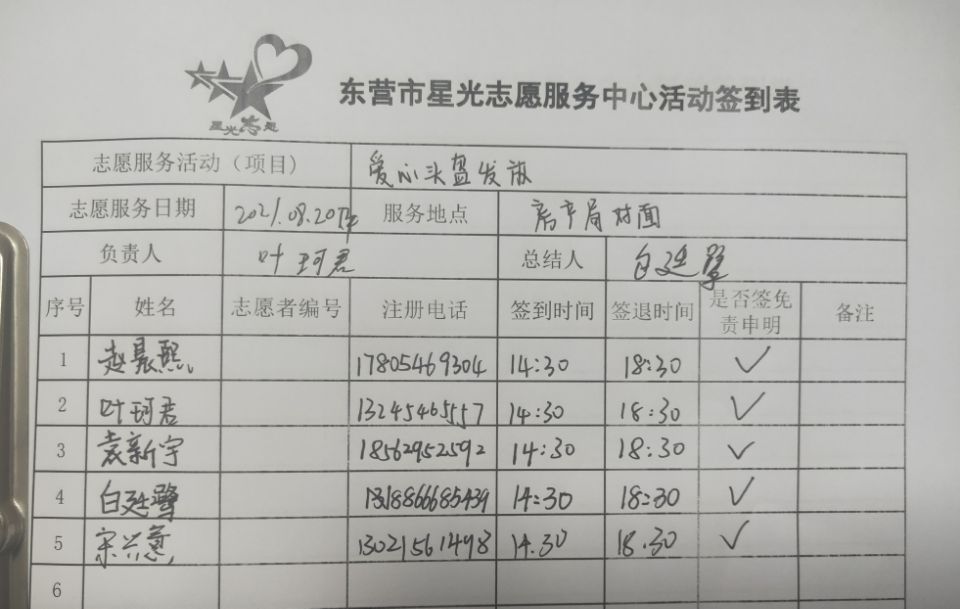 星光志愿
东营市星光志愿服务中心活动签到表
志愿服务活动（项目） 爱心头盔发放
志愿服务日期 2021.08.20下午 服务地点 房产局对面
负责人 叶珂君 总结人 白廷鹭
序号 姓名 志愿者编号 注册电话 签到时间 签退时间 是否签免 备注
责申明
1 赵晨熙 17805469304 14:30 18:30 ✓
2 叶珂君 13245465557 14:30 18:30 ✓
3 袁新宇 18562952592 14:30 18:30 ✓
4 白廷鹭 14:30 18:30 ✓
5 宋兴意 13021561498 14.30 18.30 ✓
6